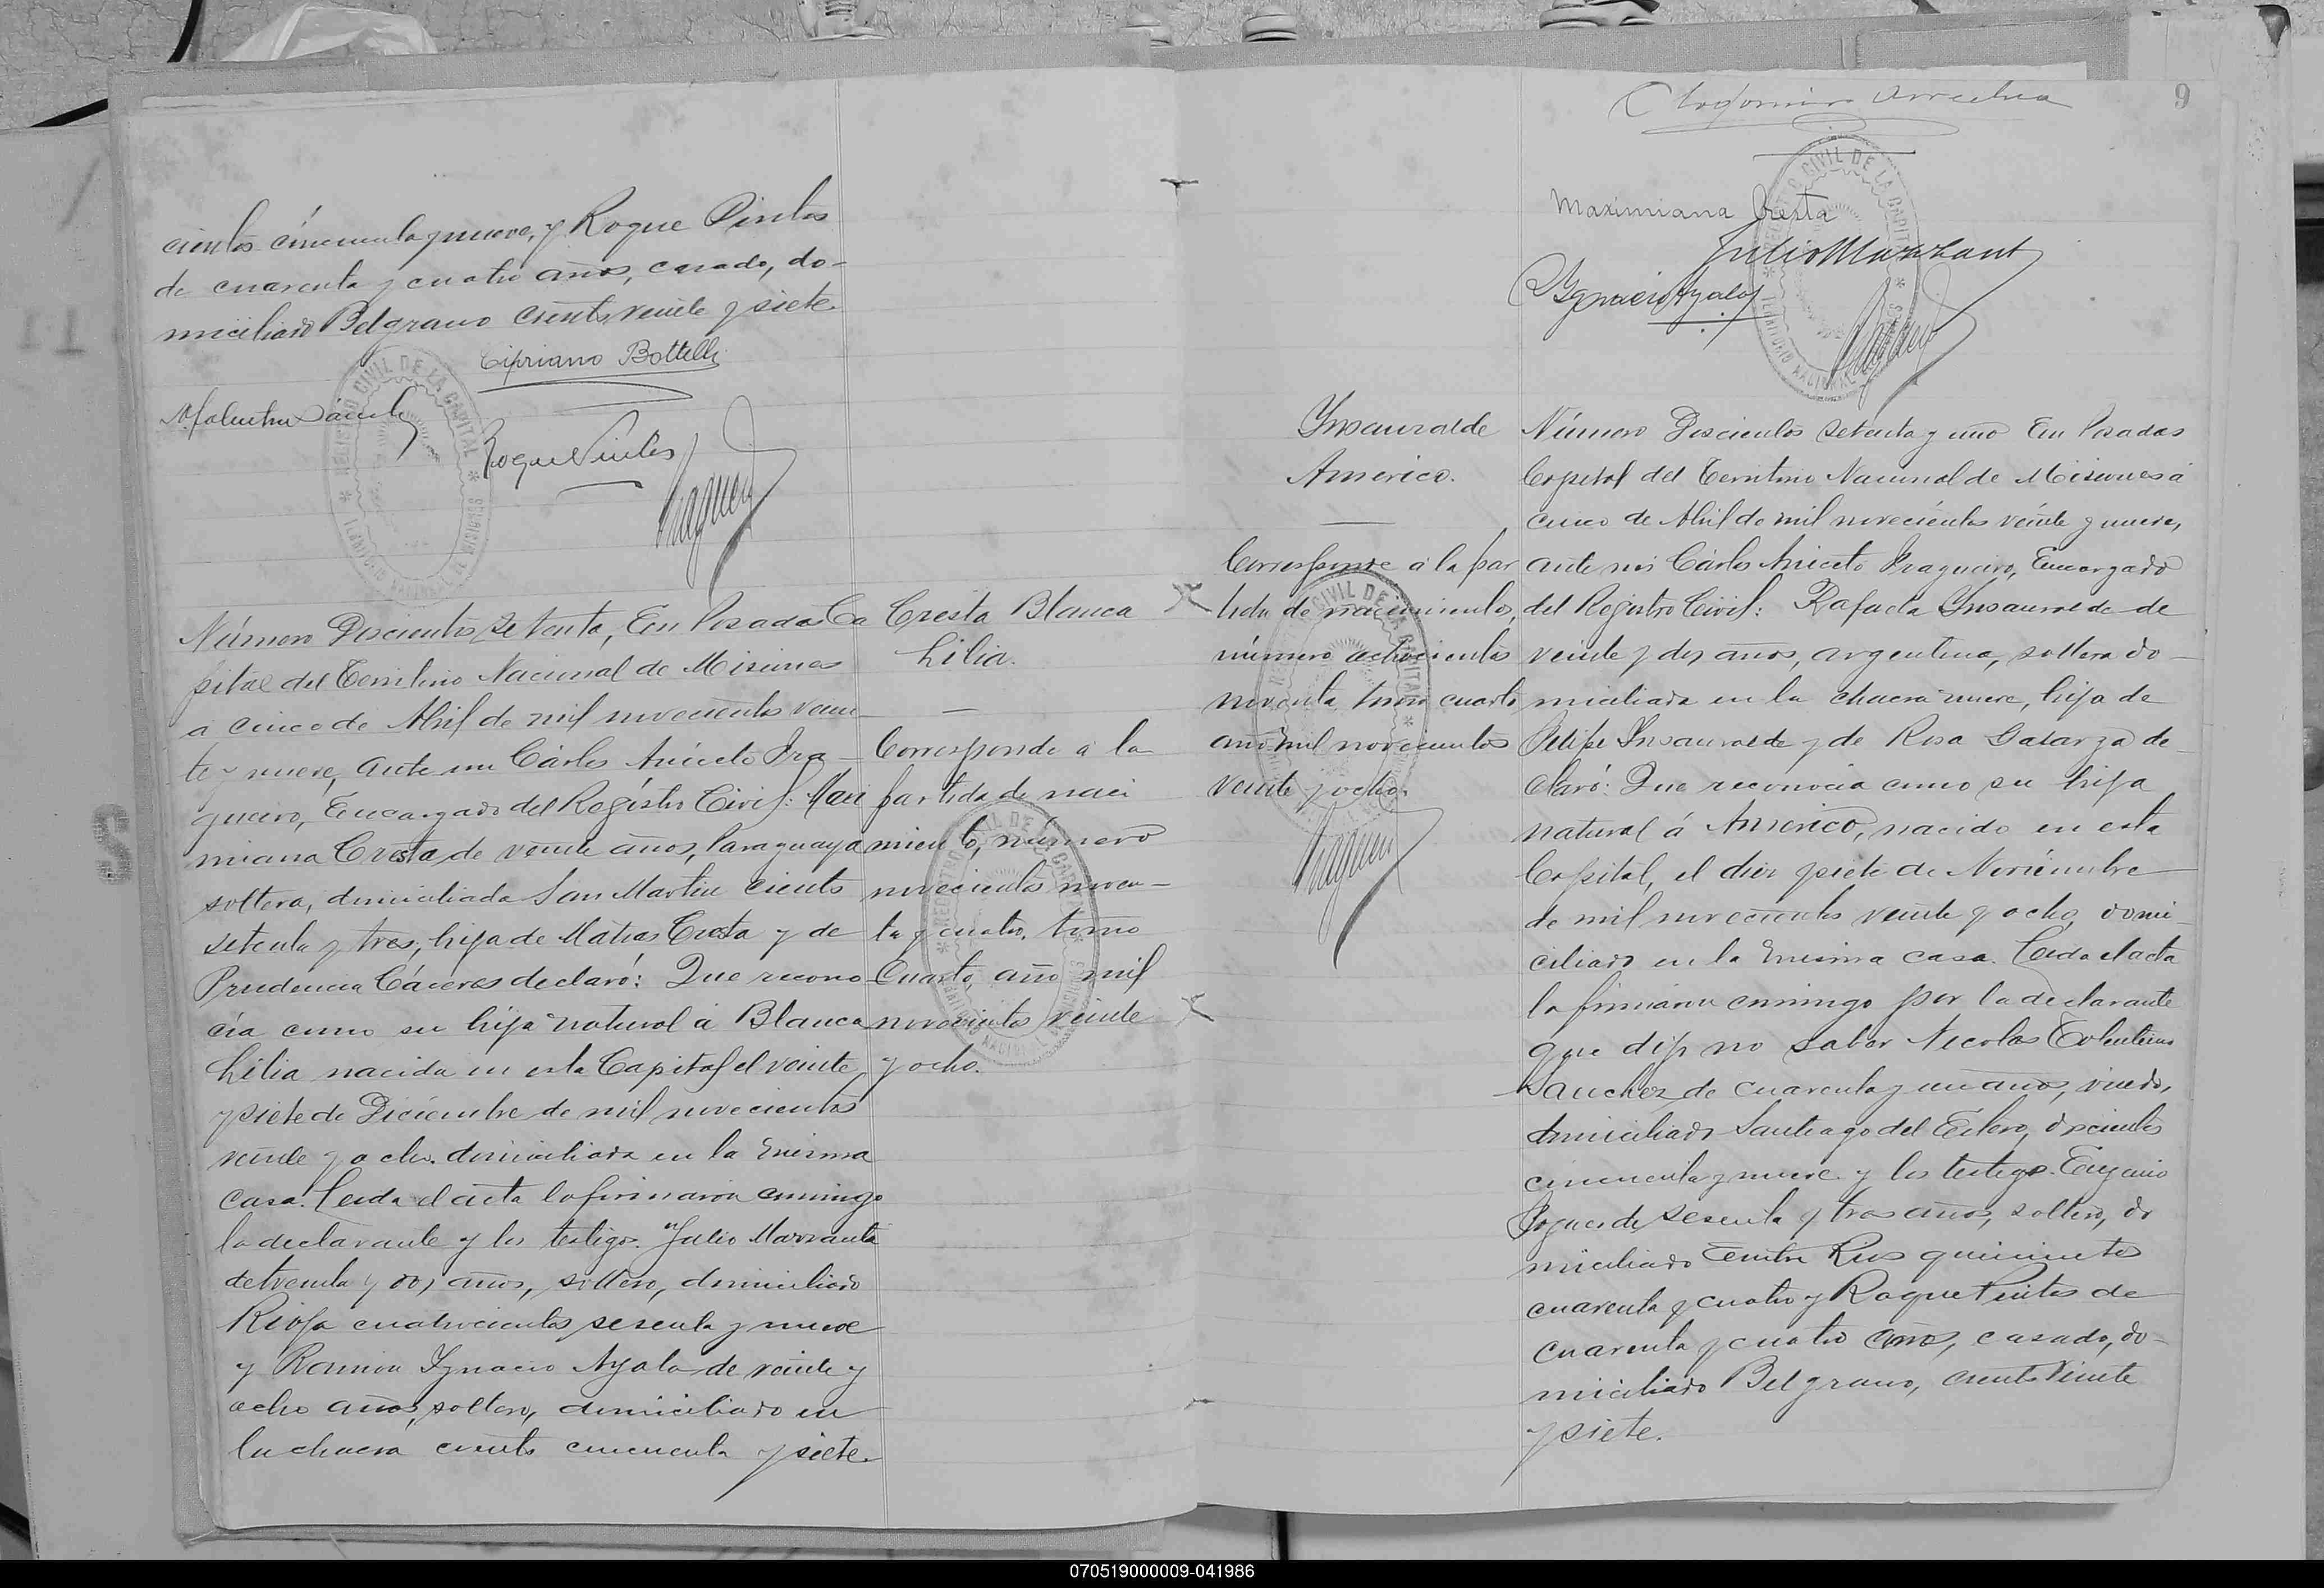 cientos cincuenta y nueve, y Roque Pintos
de cuarenta y cuatro años, casado, do-
miciliado Belgrano ciento veinte y siete.
Cipriano Bottelli
Roque Pintos
REGISTRO CIVIL DE LA CAPITAL
Número Doscientos setenta, En Posadas Ca
pital del Territorio Nacional de Misiones
a cinco de Abril de mil novecientos vein
te y nueve, ante mi Cárlos Aniceto Ira-
gueiro, Encargado del Registro Civil: Maxi
miana Cresta de veinte años, Paraguaya
soltera, domiciliada San Martin ciento
setenta y tres, hija de Matias Cresta y de
Prudencia Cáceres declaró: Que recono
cía como su hija natural á Blanca
Lilia nacida en esta Capital el veinte
y siete de Diciembre de mil novecientos
veinte y ocho. domiciliada en la misma
casa. Leida el acta la firmaron conmigo
la declarante y los testigos. Julio Marzante
de treinta y dos años, soltero, domiciliado
Rioja cuatrocientos sesenta y nueve
y Ramon Ignacio Ayala de veinte y
ocho años, soltero, domiciliado en
la chacra ciento cincuenta y siete.
Cresta Blanca
Lilia.
Corresponde a la
partida de naci
miento, número
novecientos noven-
ta y cuatro, tomo
Cuarto, año mil
novecientos veinte
y ocho.
REGISTRO CIVIL DE LA CAPITAL
9
Clodomiro Arrechea
Maximiana Cresta
Julio Marzant
R Ygnacio Ayala
REGISTRO CIVIL DE LA CAPITAL
Ynsauralde
Americo.
Corresponde a la par
tida de nacimiento,
número ochocientos
noventa, tomo cuarto
año mil novecientos
veinte y ocho.
Número Doscientos setenta y uno En Posadas
Capital del Territorio Nacional de Misiones á
cinco de Abril de mil novecientos veinte y nueve,
ante mi Cárlos Aniceto Iragueiro, Encargado
del Registro Civil: Rafaela Ynsauralde de
veinte y dos años, argentina, soltera do-
miciliada en la chacra nueve, hija de
Felipe Ynsauralde y de Rosa Galarza de-
claró: Que reconocía como su hijo
natural á Americo, nacido en esta
Capital, el diez y siete de Noviembre
de mil novecientos veinte y ocho, domi-
ciliado en la misma casa. Leida el acta
la firmaron conmigo por la declarante
que dijo no saber Nicolas Tolentino
Sanchez de cuarenta y un años, viudo,
domiciliado Santiago del Estero, doscientos
cincuenta y nueve. y los testigos. Eugenio
de sesenta y tres años, soltero, do
miciliado Entre Rios quinientos
cuarenta y cuatro y Roque Pintos de
cuarenta y cuatro años, casado, do-
miciliado Belgrano, ciento veinte
y siete.
070519000009-041986